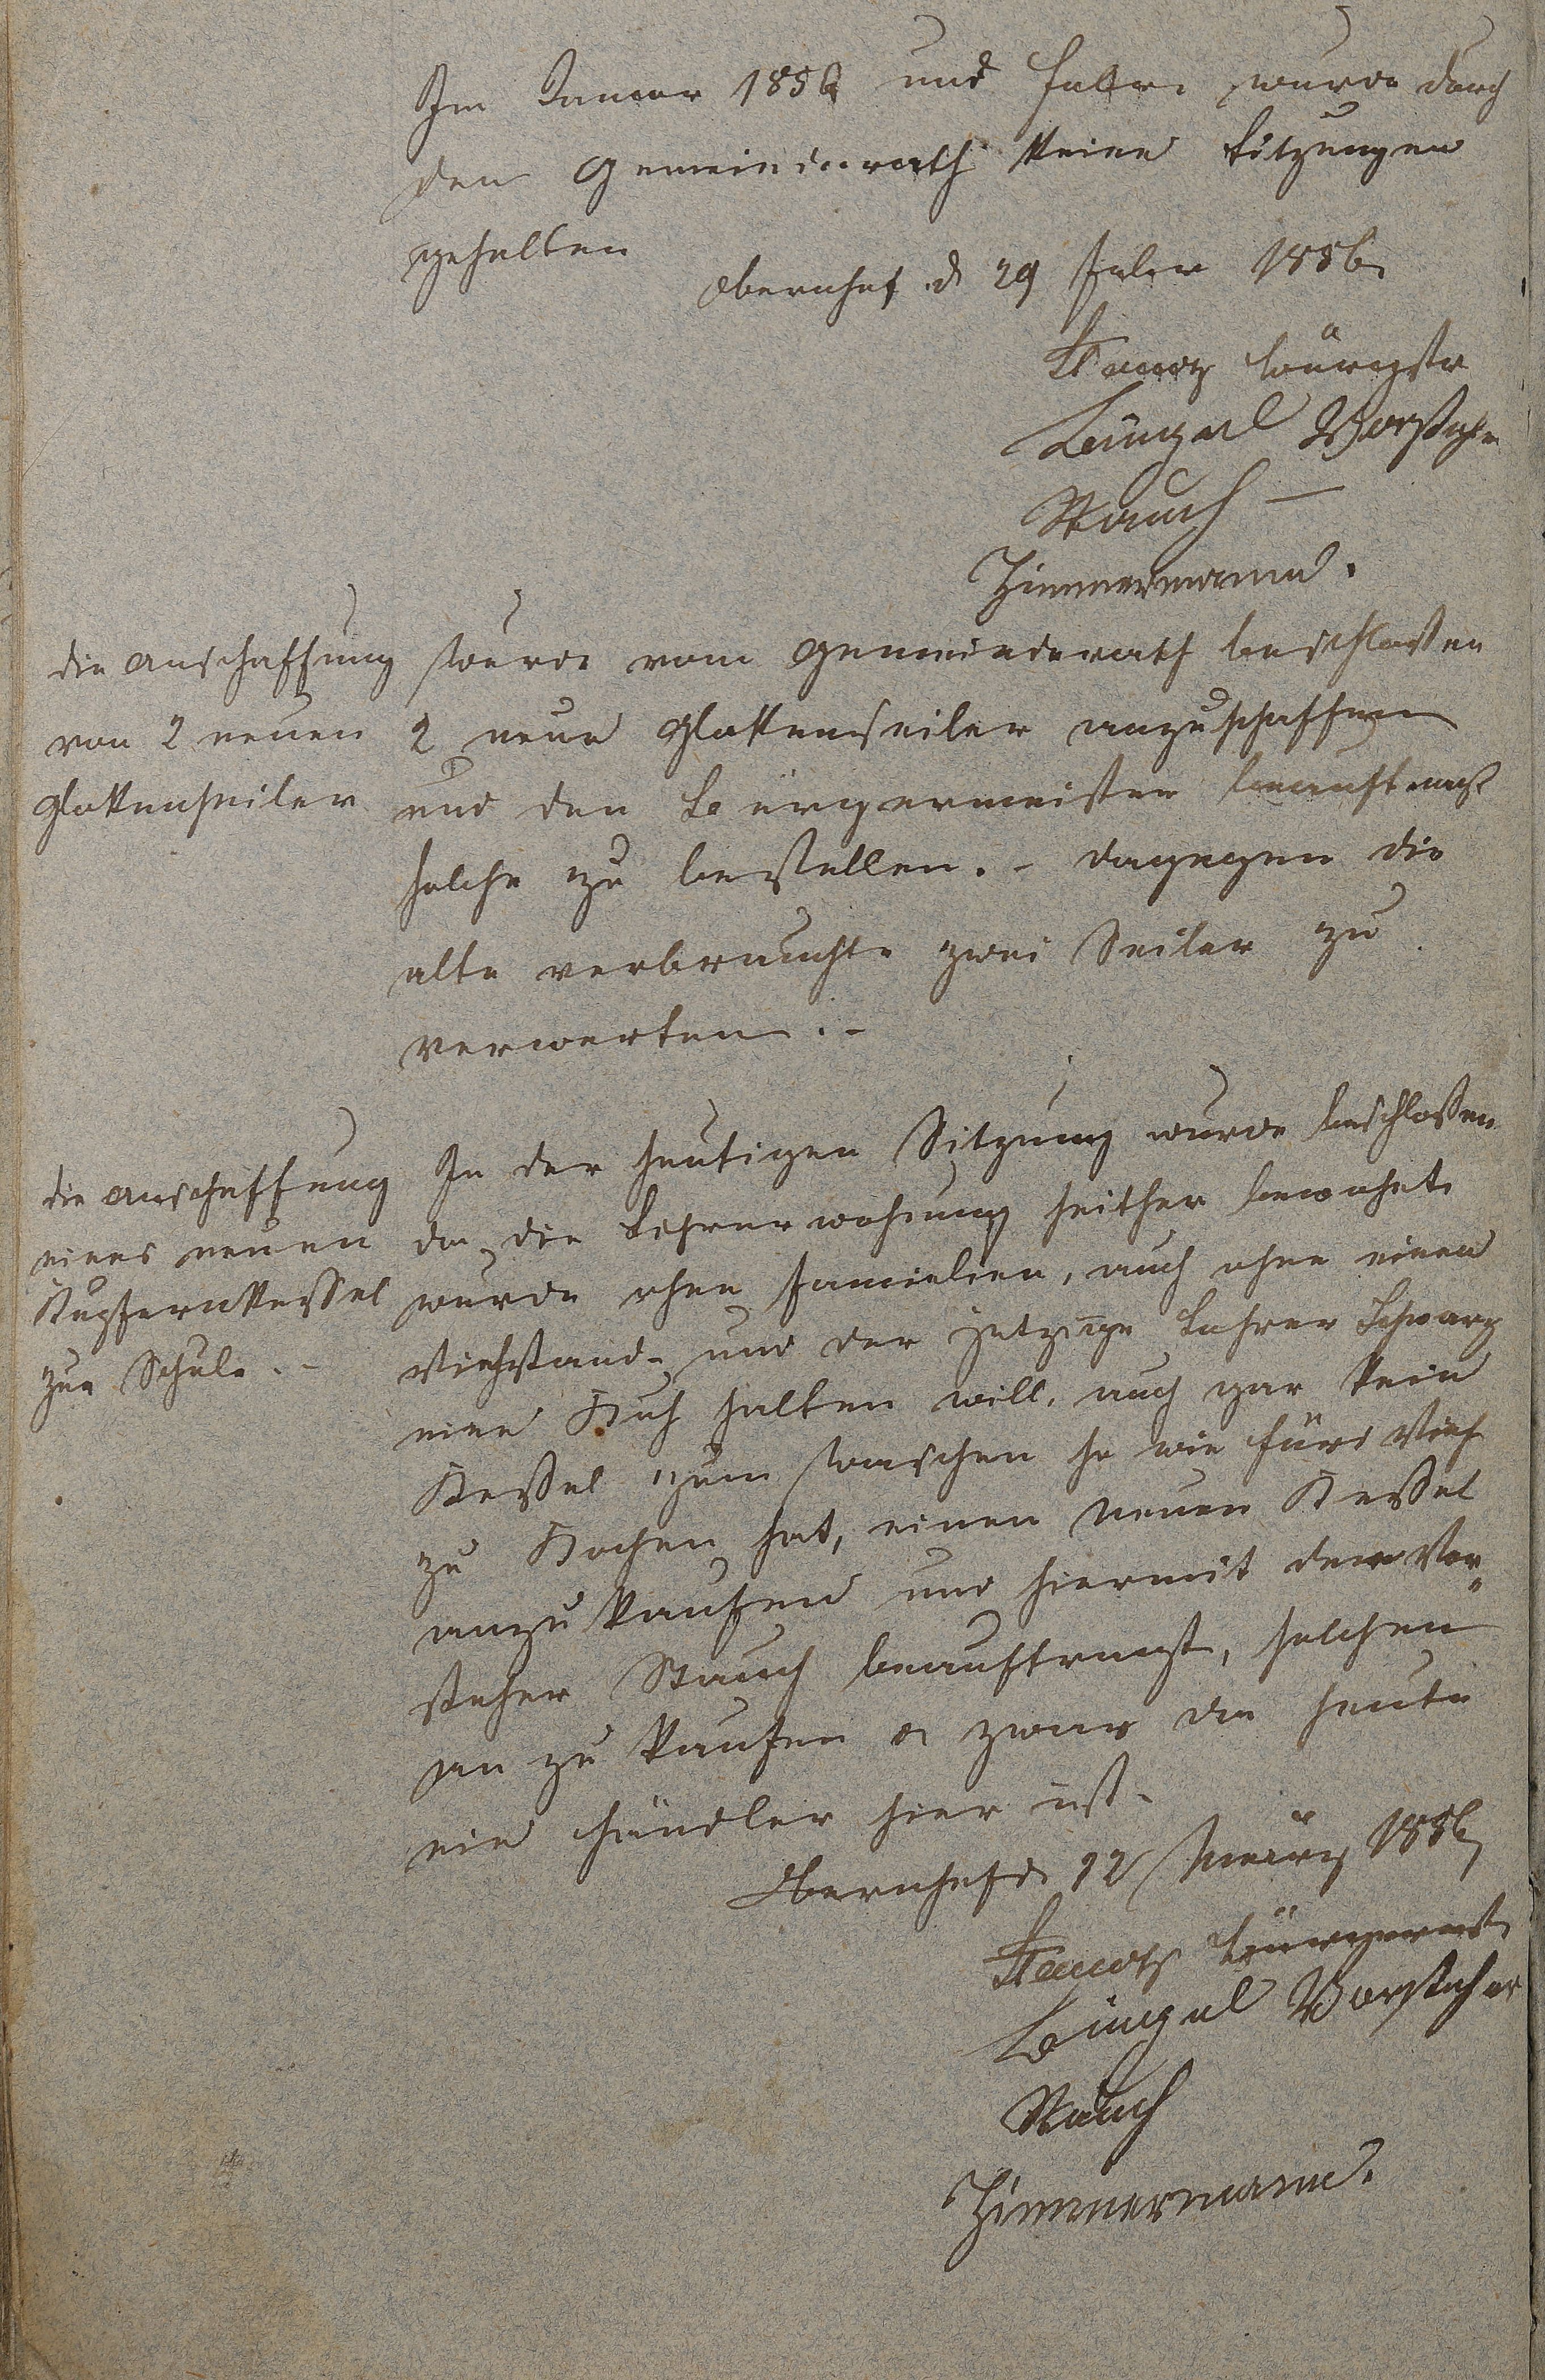 Im Januar 1856 und Febr. wurde durch
den Gemeinderath keine Sitzungen
gehalten
Obernhof d 29 Febr 1856
Bürgstr
Bingel Vorsteher
Stauch —
Zimmermann.
die Anschaffung
von 2 neuen
Glokenseiler
wurde vom Gemeinderath beschloßen
2 neue Glokenseiler anzuschaffen
und den Bürgermeister beauftragt
solche zu bestellen. - dagegen die
alte verbrauchte zwei Seiler zu
verwerten. -
die Anschaffung
eines neuen
Kupfernkessel
zur Schule. -
In der heutigen Sitzung wurde beschloßen
da die Lehrerwohnung seither bewohnt
wurde ohne Familien, auch ohne einen
Viehstand, und der jetzige Lehrer Schwarz
eine Kuh halten will, auch gar kein
Keßel zum waschen so wie fürs Vieh
zu Kochen hat, einen neuen Keßel
anzukaufen und hiermit den Vor„
steher Stauch beauftragt, solchen
an zu kaufen & zwar da heute
ein Händler hier ist.
Obernhof d. 12 Maerz 1856
Bürgermst.
Bingel Vorsteher
Stauch
Zimmermann.